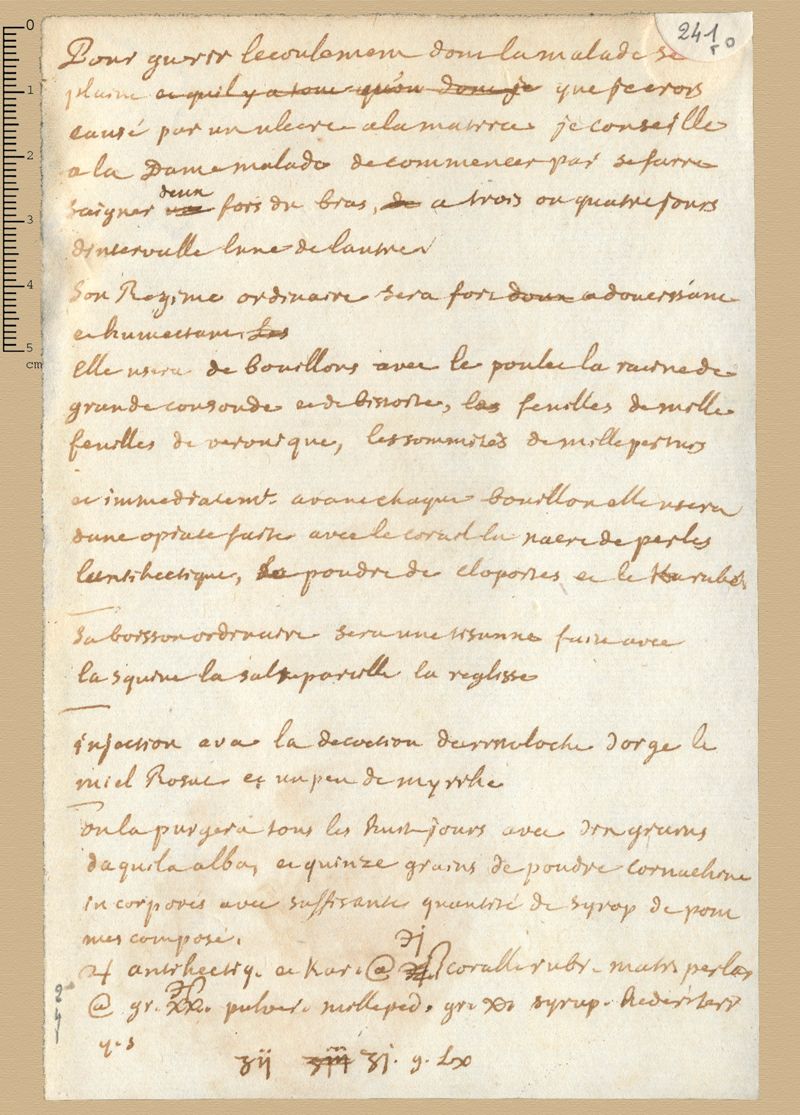 241
ro
Pour guerir lecoulement dont la malade se
plaint et quil y a tout que je crois
causé par un ulcere a la matrice je conseille
a la Dame malade de commencer par se faire
saigner deux fois du bras, de a trois ou quatre jours
dintervalle lune de lautre
Son Regime ordinaire sera fort doux adoucissant
et humectant Les
Elle usera de bouillons avec le poulet la racine de
grande consoude et de bistorte, les feuilles de mille
feuilles de veronique, les sommités de millepertuis
et immediatemt. avant chaque bouillon elle usera
dune opiate faite avec le corail la nacre de perles
lantihectique, la poudre de cloportes et le Karabé
Sa boisson ordinaire sera une tisanne faite avec
la squine la salsepareille la reglisse
injection avec la decoction daristoloche dorge le
miel Rosat et un peu de myrrhe
on la purgera tous les huit jours avec dix grains
daquila alba, et quinze grains de poudre cornachine
incorporés avec suffisante quantité de syrop de pom
mes composé.
antihectiq. et Kar. @ ʒj coralle rubr. matr. perlar
@ gr. xx. pulver. milleped. gr. xv syrup. hederæ terr
q. s
ʒij ʒiij ʒj. g. Lx
241